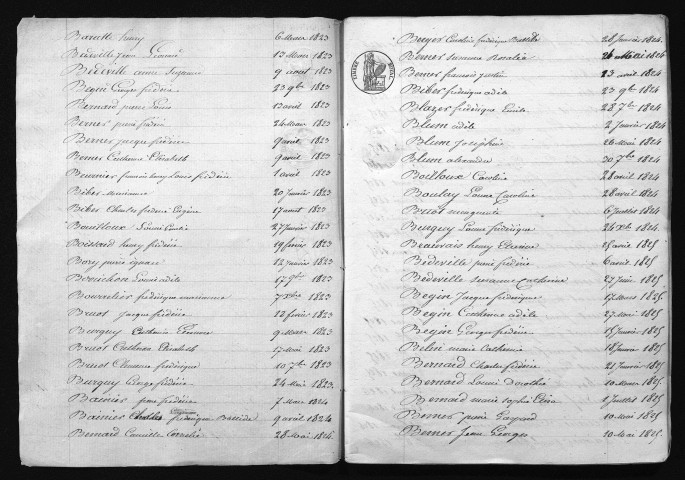 Barutt henry 6 Mars 1823
Bédéville Jean Léonard 13 Mai 1823
Bédéville anne Suzanne 9 aout 1823
Bégin Georges frédéric 23 9bre 1823
Bernard pierre Louis 12 avril 1823
Berner pierre frédéric 24 Mars 1823
Berner Jacques frédéric 9 avril 1823
Berner Catherine Elisabeth 9 avril 1823
Beurnier francois henry Louis frédéric 1 avril 1823
Biber 20 Janvier 1823
Biber Charles frédéric Eugène 17 aout 1823
Bouilloux Louise Emilie 27 Janvier 1823
Boissard henry frédéric 19 février 1823
Bory pierre ignace 12 Janvier 1823
Bornichon Louise adèle 17 9bre 1823
Bourrelier frédérique marianne 7 Xbre 1823
Bruot Jacques frédéric 12 février 1823
Burguy Catherine 9 Mars 1823
Bruot Catherine Elisabeth 17 Mai 1823
Bruot Clémence frédérique 10 7bre 1823
Burguy George frédéric 24 Mai 1823
Bainier pierre frédéric 7 Mars 1824
Bainier Charles frédérique 9 avril 1824
Bernard Camille Cornélie 28 Mai 1824
Beyer Caroline frédérique 28 Janvier 1824
Berner Suzanne Rosalie 26 Mai 1824
Berner francois Justin 23 avril 1824
Biber frédérique adèle 23 9bre 1824
Blazer frédérique Emilie 28 7bre 1824
Blum adèle 2 Janvier 1824
Blum Joséphine 26 Mai 1824
Blum alexandre 30 7bre 1824
Bouilloux Caroline 28 avril 1824
Boulay Louise Caroline 28 avril 1824
Bruot marguerite 6 Juillet 1824
Burguy Louise frédérique 24 Xbre 1824
Beauvais henry Etienne 15 avril 1825
Bédéville pierre frédéric 6 avril 1825
Bédéville Suzanne Catherine 27 Juin 1825
Bégin Jacques frédérique 17 Mars 1825
Bégin Catherine adèle 27 Mai 1825
Bégin George frédéric 15 Janvier 1825
Belin marie Catherine 18 février 1825
Bernard Charles frédéric 21 Janvier 1825
Bernard Louise Dorothée 10 Mars 1825
Bernard marie sophie Elisa 1 Juillet 1825
Berner pierre Gaspard 10 Mai 1825
Berner Jean Georges 10 Mai 1825